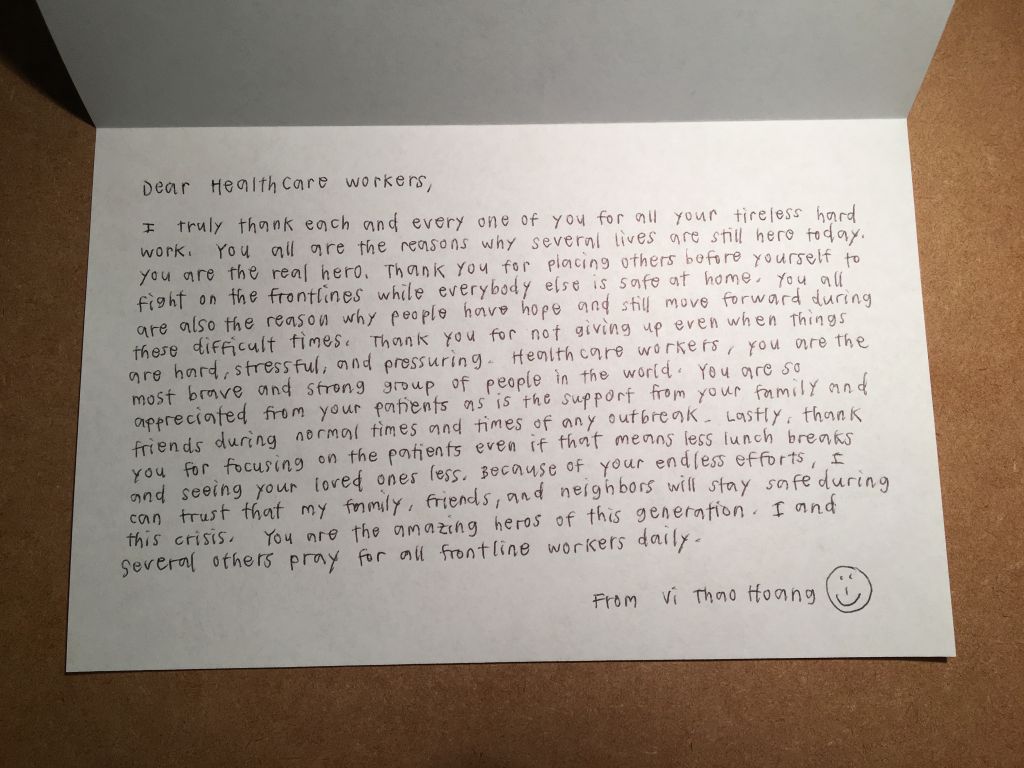 Dear Healthcare workers,
I truly thank each and every one of you for all your tireless hard
work. You all are the reasons why several lives are still here today.
You are the real hero. Thank you for placing others before yourself to
fight on the frontlines while everybody else is safe at home. You all
are also the reason why people have hope and still move forward during
these difficult times. Thank you for not giving up even when things
are hard, stressful, and pressuring. Healthcare workers, you are the
most brave and strong group of people in the world. You are so
appreciated from your patients as is the support from your family and
friends during normal times and times of any outbreak. Lastly, thank
you for focusing on the patients even if that means less lunch breaks
and seeing your loved ones less. Because of your endless efforts, I
can trust that my family, friends, and neighbors will stay safe during
this crisis. You are the amazing heros of this generation. I and
several others pray for all frontline workers daily.
From Vi Thao Hoang